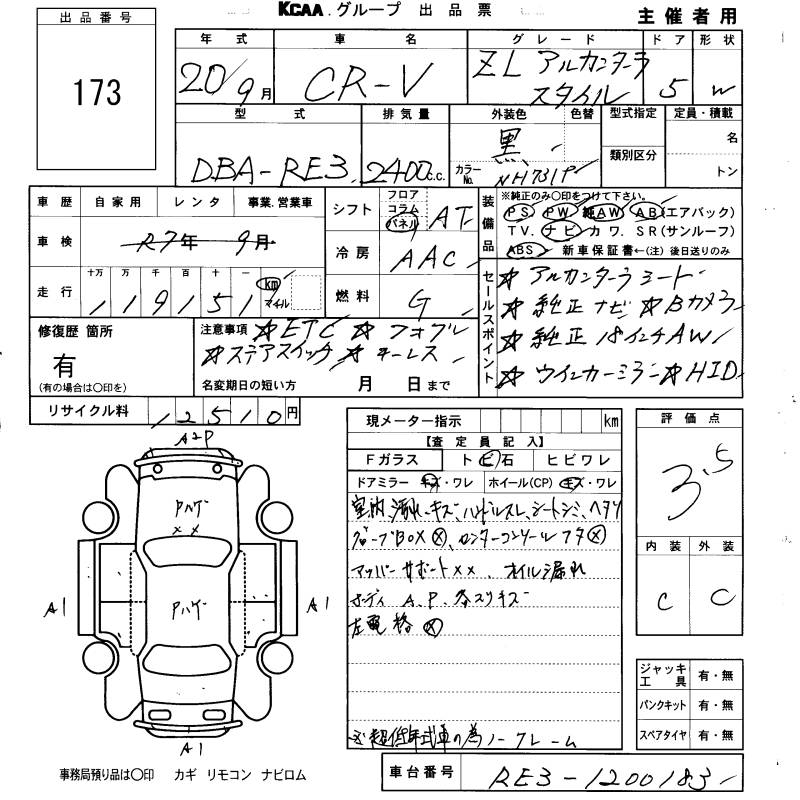 KCAA.グループ 出品票
主催者用
出品番号
173
年式 車名 グレード ドア 形状
20/9月 CR-V ZL アルカンターラ スタイル 5 W
型式 排気量 外装色 色替 型式指定 定員・積載
DBA-RE3 2400c.c. 黒 名
カラーNo. NH731P 類別区分 トン
車歴 自家用 レンタ 事業.営業車
車検 R7年 9月
走行 十万 万 千 百 十 一
119151 km マイル
シフト フロア コラム パネル AT
冷房 AAC
燃料 G
装備品
※純正のみ〇印をつけて下さい。
PS PW 純AW AB(エアバック)
TV. ナビ カワ. SR(サンルーフ)
ABS 新車保証書←(注) 後日送りのみ
セールスポイント
☆アルカンターラシート
☆純正ナビ ☆Bカメラ
☆純正18インチAW
☆ウインカーミラー ☆HID
修復歴 箇所
有
(有の場合は〇印を)
注意事項 ☆ETC ☆フォグ
☆ステアスイッチ ☆キーレス
名変期日の短い方 月 日まで
リサイクル料 12510円
現メーター指示 km
【査定員記入】
Fガラス トビ石 ヒビワレ
ドアミラー キズ・ワレ ホイール(CP) キズ・ワレ
室内 汚れ、キズ、ハンドルスレ、シートシミ、ヘタリ
グローブBOX ×、センターコンソールフタ ×
アッパーサポート××、オイル漏れ
ボディ A.P.各スリキズ
左電格 ×
※超低年式車の為ノークレーム
評価点
3.5
内装 外装
C C
ジャッキ 工具 有・無
パンクキット 有・無
スペアタイヤ 有・無
A2P
Pハゲ
××
Pハゲ
A1
A1
A1
事務局預り品は〇印 カギ リモコン ナビロム
車台番号 RE3-1200183